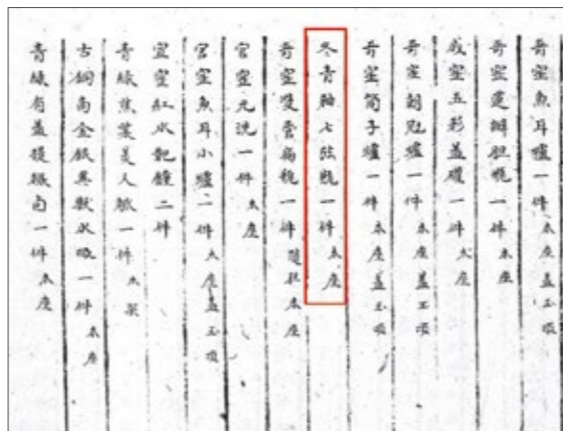 哥窑魚耳爐一件 木座盖玉頂
哥窑蓮瓣胆瓶一件 木座
成窑五彩盖礶一件 木座
哥窑朝冠爐一件 木座盖玉頂
哥窑筒子爐一件 木座盖玉頂
冬青釉七弦瓶一件 木座
哥窑雙管扁瓶一件 随木座
官窑元洗一件 木座
官窑魚耳小爐一件 木座盖玉頂
宣窑紅水靶鐘二件
青綠蕉葉美人觚一件 木架
古銅商金銀異獸水吸一件 木座
青綠有盖提樑卣一件 木座